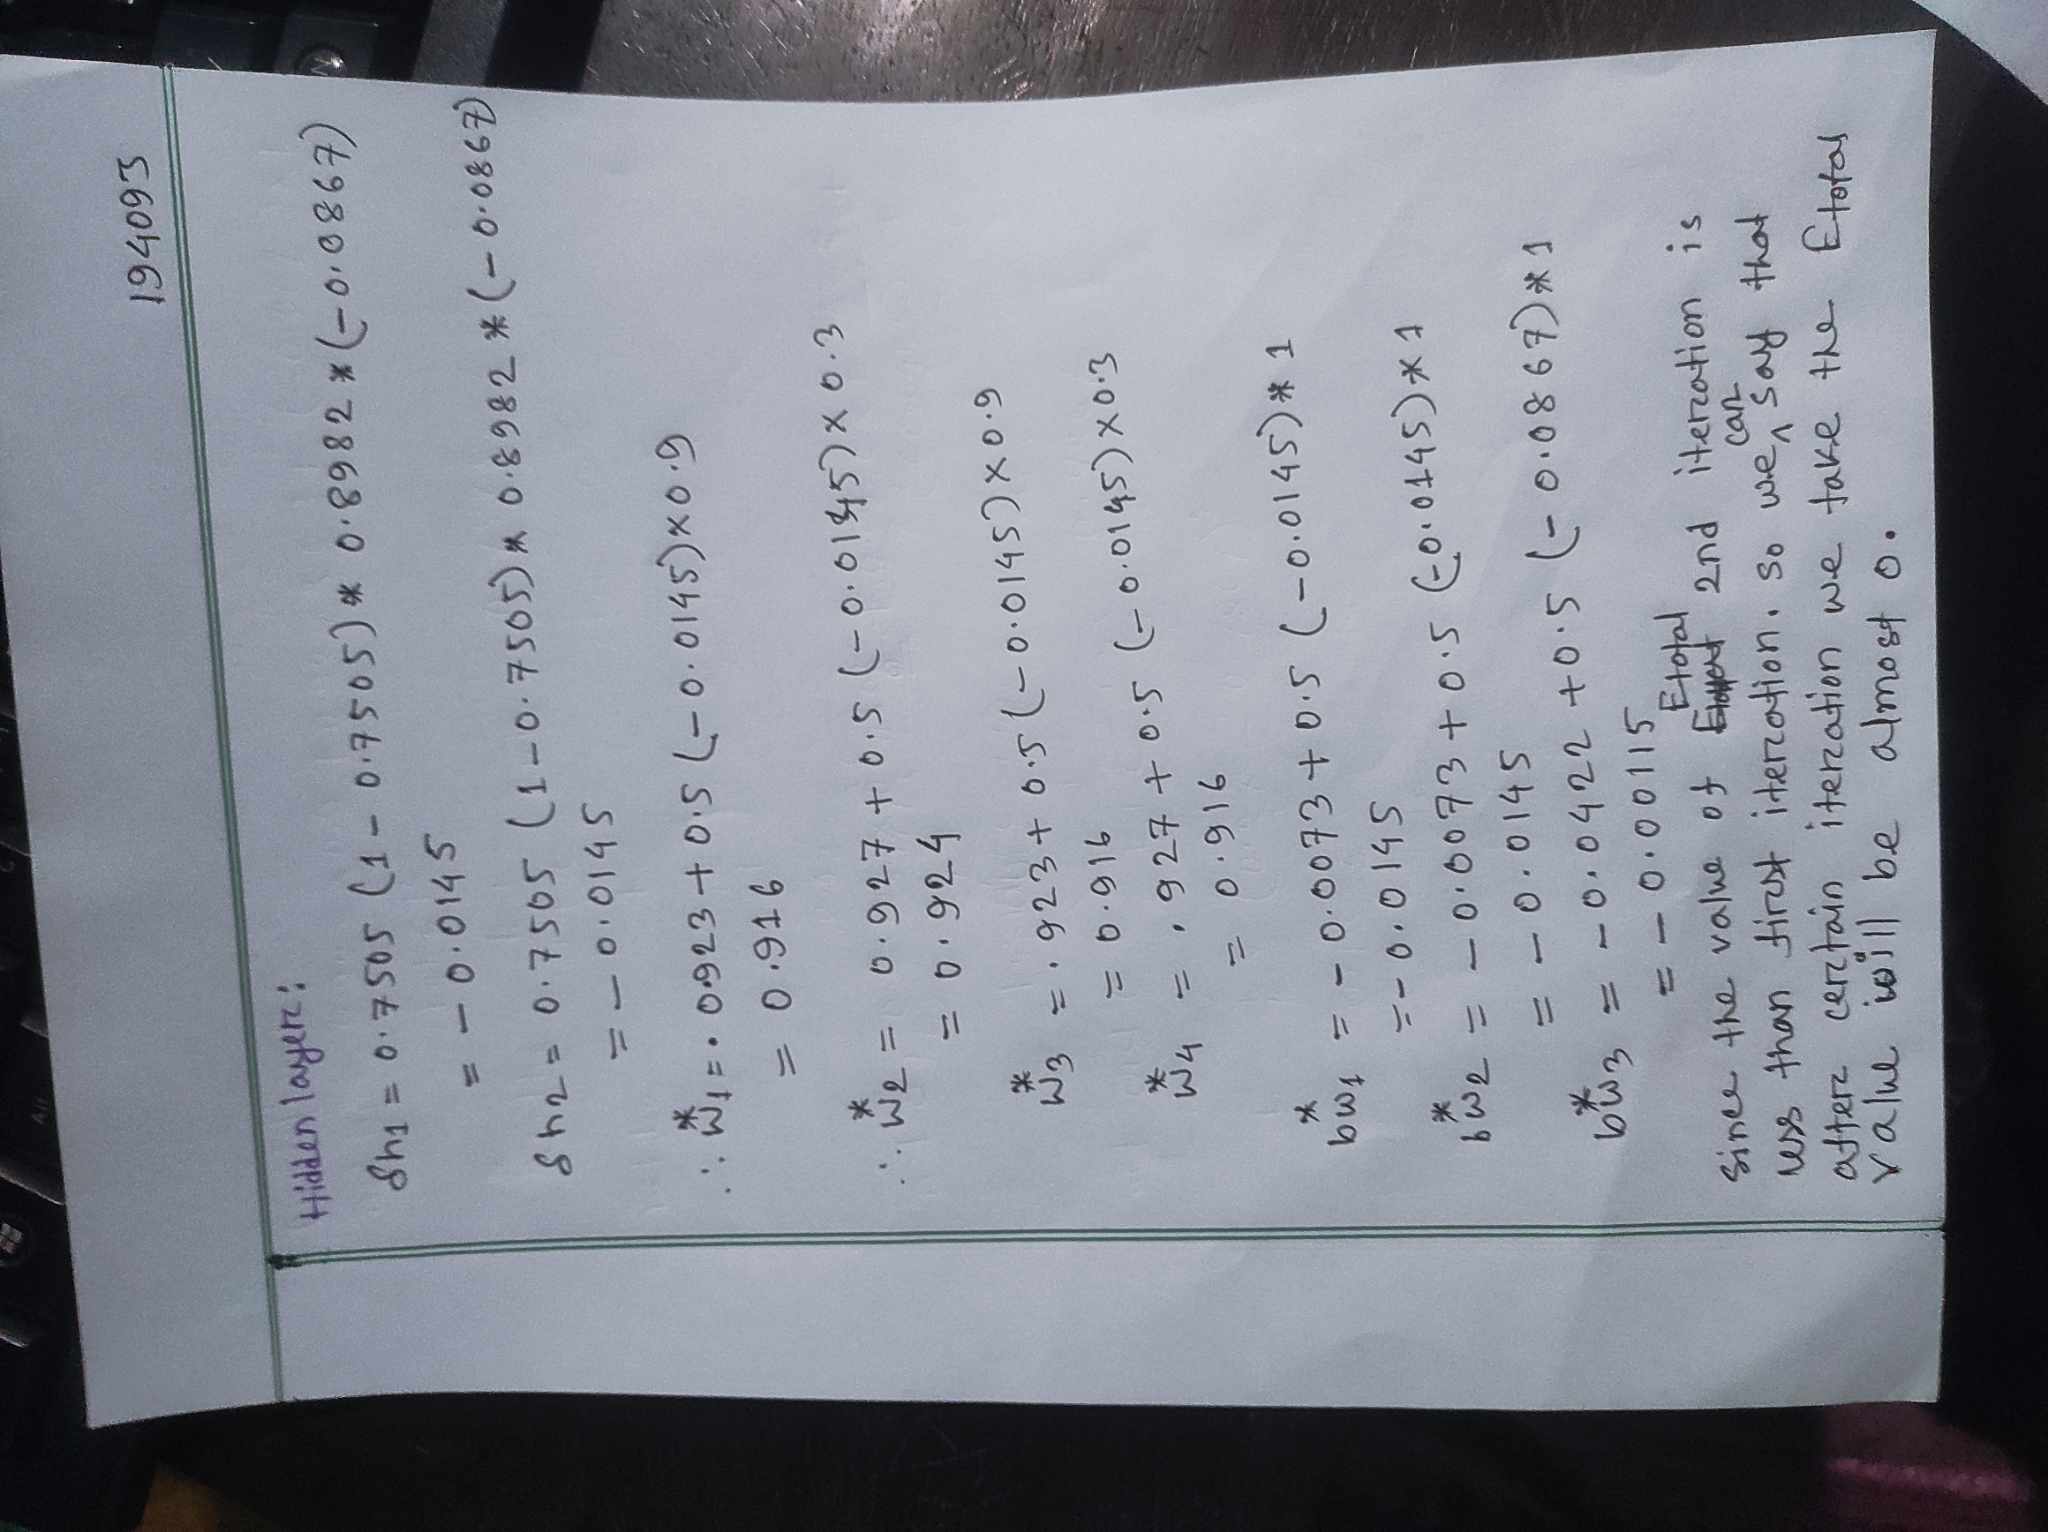 194093
Hidden layer:
δh1 = 0.7505 (1-0.7505)* 0.8982*(-0.0867)
= -0.0145
δh2 = 0.7505 (1-0.7505)* 0.8982*(-0.0867)
= -0.0145
∴ w1* = .0923+0.5 (-0.0145)×0.9
= 0.916
∴ w2* = 0.927+0.5 (-0.0145)×0.3
= 0.924
w3* = .923+0.5(-0.0145)×0.9
= 0.916
w4* = .927+0.5 (-0.0145)×0.3
= 0.916
bw1* = -0.0073+0.5 (-0.0145)*1
= -0.0145
bw2* = -0.0073+0.5 (-0.0145)*1
= -0.0145
bw3* = -0.0422+0.5 (-0.0867)*1
= -0.00115
Since the value of Etotal 2nd iteration is
less than first iteration. So we can say that
after certain iteration we take the Etotal
value will be almost 0.